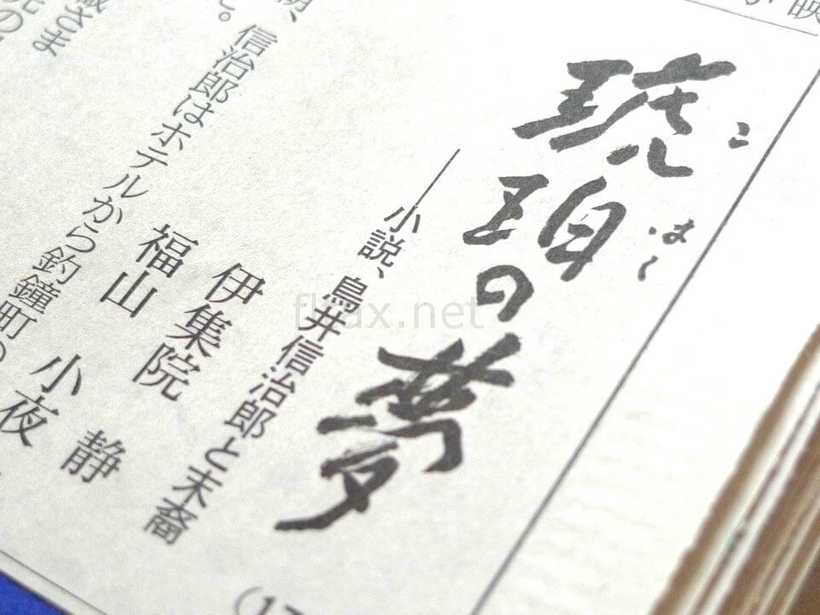 琥珀の夢
こ はく
――小説、鳥井信治郎と末裔
伊集院 静
福山 小夜
信治郎はホテルから釣鐘町の
flyax.net